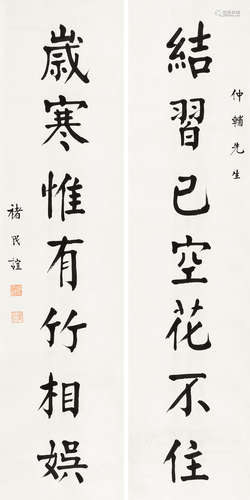 仲輔先生
結習已空花不住
歲寒惟有竹相娛
褚民誼